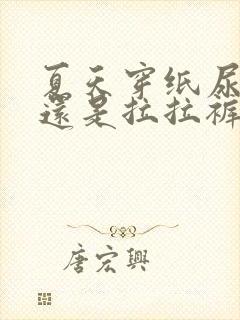 夏天穿纸尿
還是拉拉裤
唐宏興